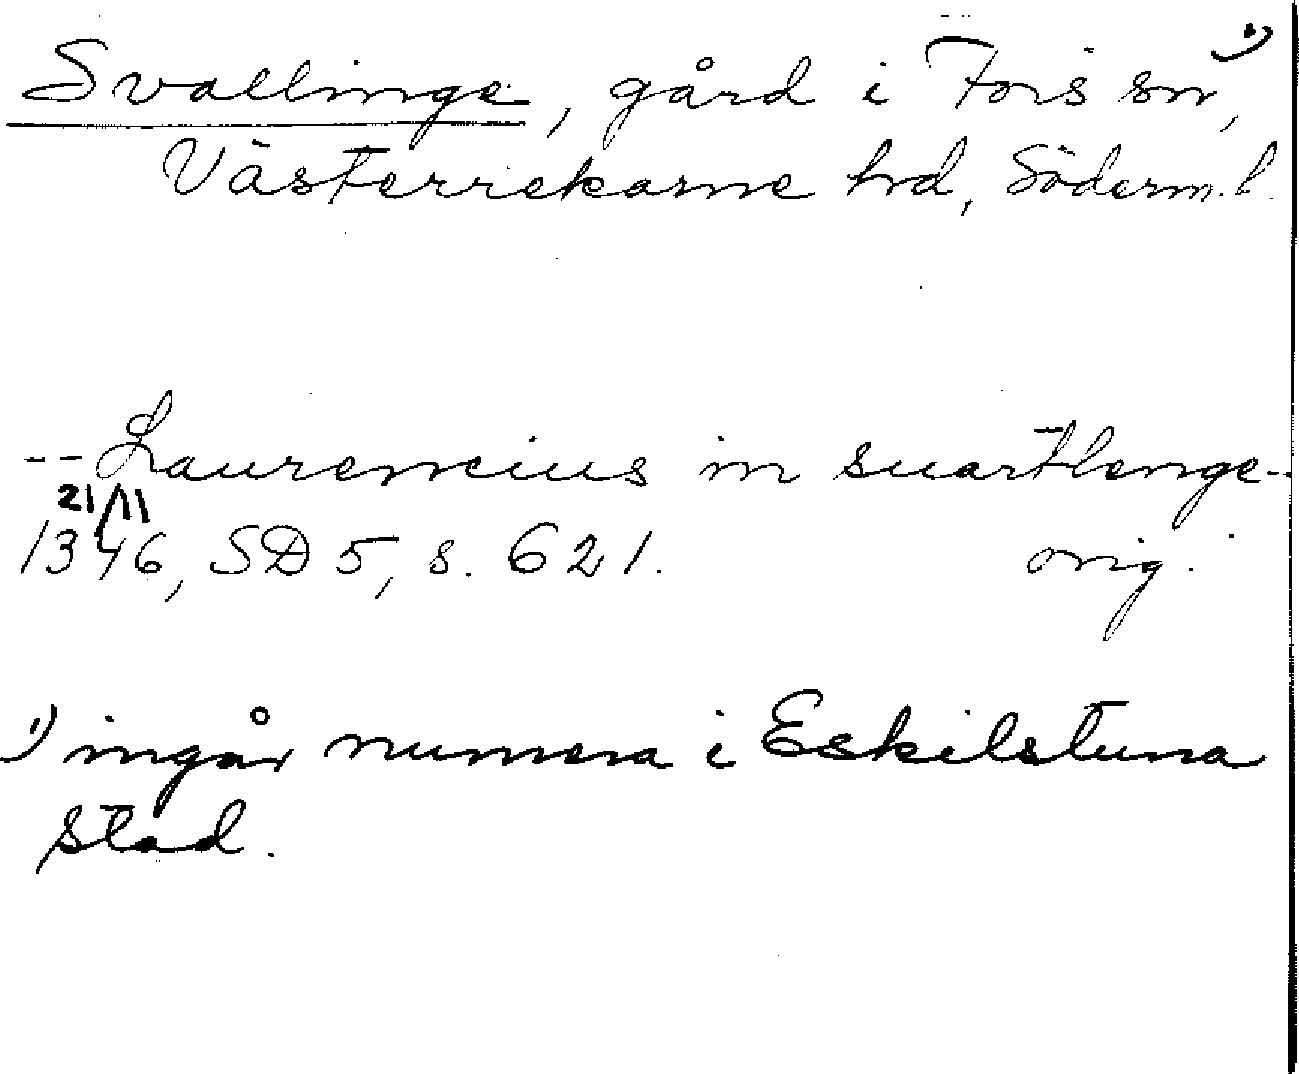 Svallinge, gård i Fors sn, 1)
Västerrekarne hrd, Söderm. l.
-- Laurencius in suartlenge --
21/11
1346, SD 5, s. 621. orig.
1) ingår numera i Eskilstuna
stad.